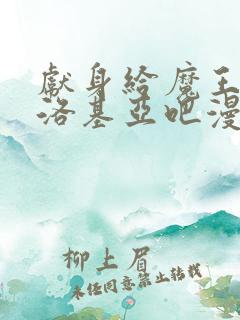 獻身給魔王
洛基亞吧漫
柳上眉
未经同意禁止转载